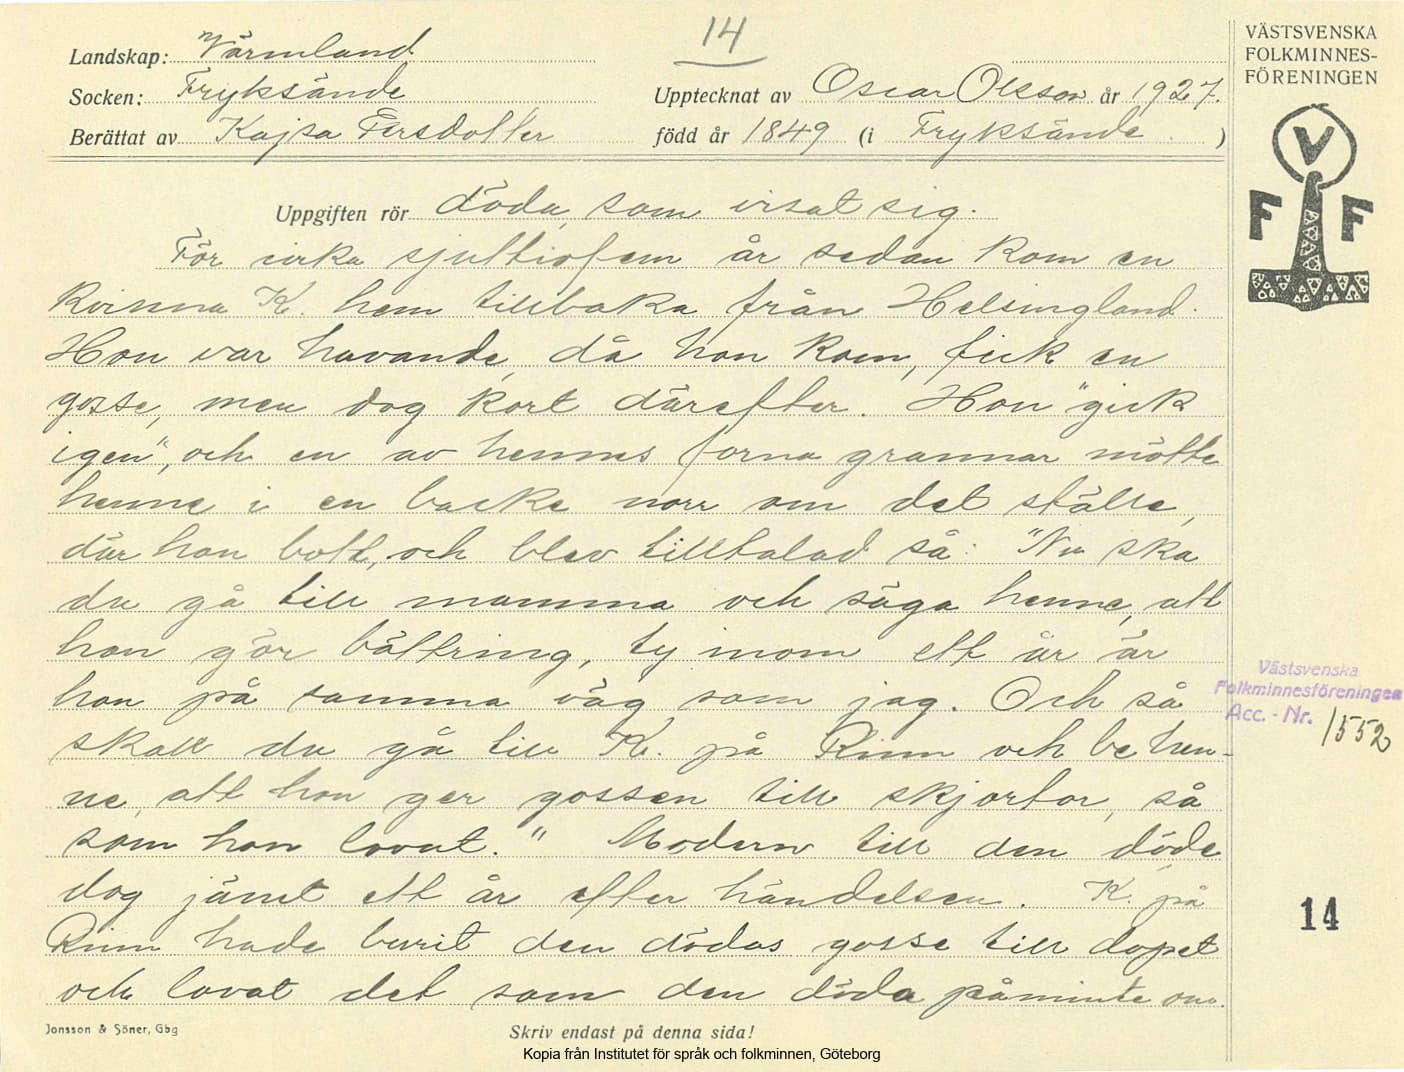 14
Landskap: Värmland
Socken: Fryksände
Upptecknat av Oscar Olsson år 1927.
Berättat av Kajsa Persdotter
född år 1849 (i Fryksände )
VÄSTSVENSKA
FOLKMINNES-
FÖRENINGEN
V
F F
Uppgiften rör döda, som visat sig.
För cirka sjuttiofem år sedan kom en
kvinna K. hem tillbaka från Helsingland.
Hon var havande, då hon kom, fick en
gosse, men dog kort därefter. Hon "gick
igen", och en av hennes forna grannar mötte
henne i en backe norr om det ställe,
där hon bott, och blev tilltalad så: "Nu ska
du gå till mamma och säga henne, att
hon gör bättring, ty inom ett år är
hon på samma väg som jag. Och så
skall du gå till K. på Rinn och be hen-
ne, att hon ger gossen till skjortor, så
som hon lovat." Modern till den döde
dog jämt ett år efter händelsen. K. på
Rinn hade burit den dödas gosse till dopet
och lovat det som den döda påminte om.
Västsvenska
Folkminnesföreningen
Acc. - Nr. 1552
14
Jonsson & Söner, Gbg
Skriv endast på denna sida!
Kopia från Institutet för språk och folkminnen, Göteborg